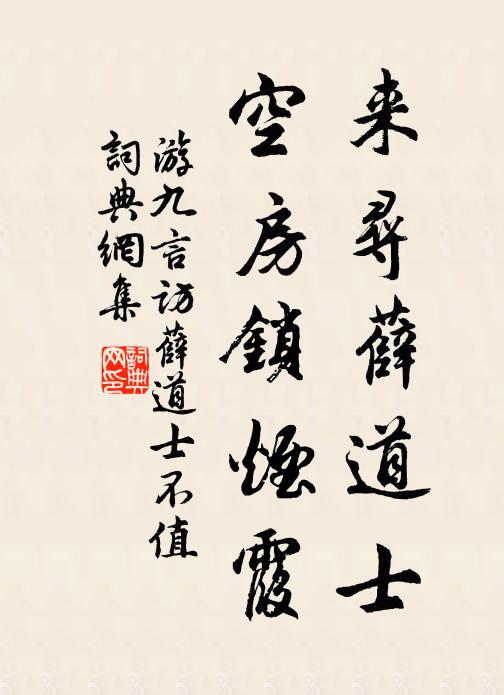 来尋薛道士
空房鎖煙霞
游九言訪薛道士不值
詞典網集
詞典网印